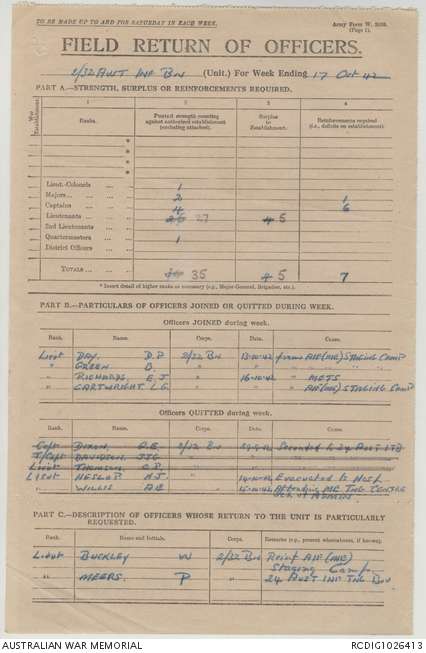 TO BE MADE UP TO AND FOR SATURDAY IN EACH WEEK.
Army Form W.
(Page 1).
FIELD RETURN OF OFFICERS.
2/32 AUST INF BN (Unit.) For Week Ending 17 Oct 42
PART A.—STRENGTH, SURPLUS OR REINFORCEMENTS REQUIRED.
War Establishment
1 2 3 4
Ranks. Posted strength counting against authorized establishment (excluding attached). Surplus to Establishment. Reinforcements required (i.e., deficits on establishment).
*
*
*
*
Lieut.-Colonels 1
Majors 2 1
Captains 4 6
Lieutenants 27 4 5
2nd Lieutenants
Quartermasters 1
District Officers
TOTALS 35 4 5 7
* Insert detail of higher ranks as necessary (e.g., Major-General, Brigadier, etc.)
PART B.—PARTICULARS OF OFFICERS JOINED OR QUITTED DURING WEEK.
Officers JOINED during week.
Rank. Name. Corps. Date. Cause.
Lieut DAY, D P 2/32 Bn 13-10-42 from AIF(ME) STAGING CAMP
" GREEN B. " " " " " "
" RICHARDS, E. J " 16-10-42 " METS
" CARTWRIGHT L.G. " " " AIF(ME) STAGING CAMP
Officers QUITTED during week.
Rank. Name. Corps. Date. Cause.
Capt DIXON 2/32 Bn Seconded to 24 AUST ITB
T/Capt DAVIDSON JTG " " "
Lieut THOMSON C.P. " " "
LIEUT HESLOP H J " 14-10-42 Evacuated to Hosp
" WILLIS AB " 15-10-42 Attending ME Tng Centre
Sch of Admin.
PART C.—DESCRIPTION OF OFFICERS WHOSE RETURN TO THE UNIT IS PARTICULARLY REQUESTED.
Rank. Name and Initials. Corps. Remarks (e.g., present whereabouts, if known).
Lieut BUCKLEY W 2/32 Bn Reinf AIF (ME)
Staging Camp
" MEERS. P " 24 AUST INF TNG BN
AUSTRALIAN WAR MEMORIAL RCDIG1026413